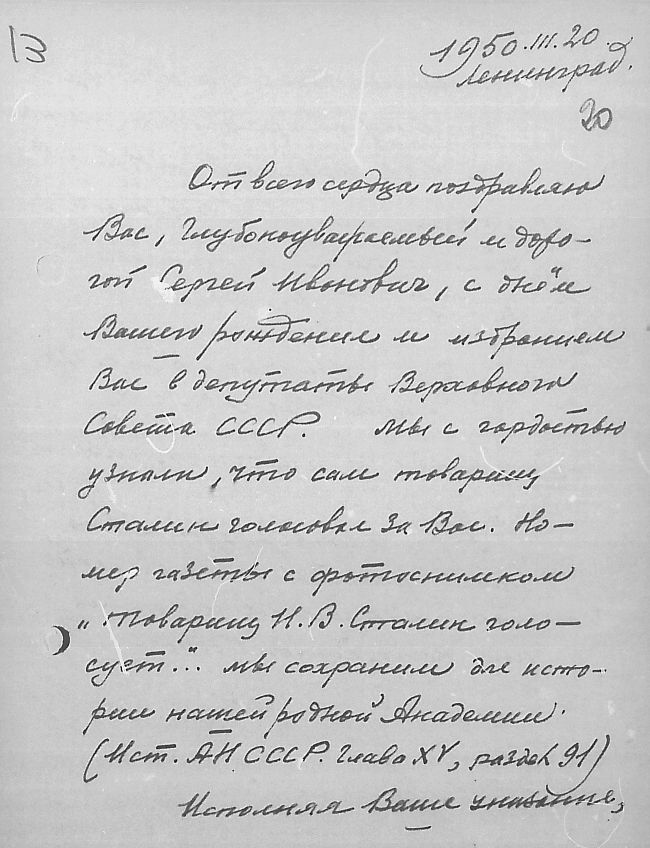 13
1950.III.20.
Ленинград.
20
От всего сердца поздравляю
Вас, глубокоуважаемый и доро-
гой Сергей Иванович, с днём
Вашего рождения и избранием
Вас в депутаты Верховного
Совета СССР. Мы с гордостью
узнали, что сам товарищ
Сталин голосовал за Вас. Но-
мер газеты с фотоснимком
„Товарищ И. В. Сталин голо-
сует." мы сохраним для исто-
рии нашей родной Академии.
(Ист. АН СССР. Глава XV, раздел 91)
Исполняя Ваше указание,